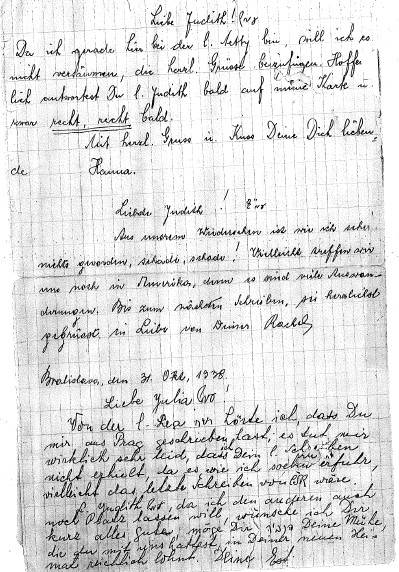 Liebe Judith!
Da ich gerade hier bei der l. Betty bin, will ich es
nicht versäumen, die herzl. Grüsse beizufügen. Hoffent
lich antwortest Du l. Judith bald auf meine Karte u.
zwar recht, recht bald.
Mit herzl. Gruss u. Kuss Deine Dich lieben-
de Hanna.
Liebe Judith!
Aus unserem Wiedersehen ist wie ich sehe!
nichts geworden, schade, schade! Vielleicht treffen wir
uns noch in Amerika, denn es sind viele Auswan-
derungen. Bis zum nächsten Schreiben, sei herzlichst
gegrüsst in Liebe von Deiner Rachel
Bratislava, den 31. Okt. 1938.
Liebe Julia!
Von der l. Rea hörte ich, dass Du
mir aus Prag geschrieben hast, es tut mir
wirklich sehr leid, dass Dein l. Schreiben
nicht erhielt da es wie ich soeben erfuhr,
vielleicht das letzte Schreiben von ČSR wäre.
L. Judith, da ich den anderen auch
noch Platz lassen will wünsche ich Dir
kurz alles Gute, möge Dir Deine Mühe,
die Du mit uns hattest in Deiner neuen Hei-
mat reichlich lohnt. Deine